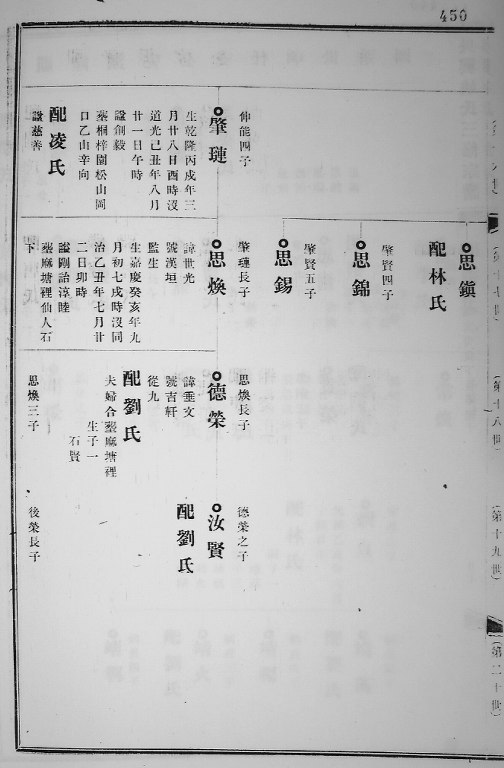 450
（第十八世）
（第十九世）
（第二十世）
伸能四子
肇璉
生乾隆丙戌年三
月廿八日酉時沒
道光己丑年八月
廿一日午時
諡創毅
塟桐梓園松山岡
口乙山辛向
配凌氏
諡慈善
思鎮
配林氏
肇賢四子
思錦
肇賢五子
思錫
肇璉長子
思煥
諱世光
號漢垣
監生
生嘉慶癸亥年九
月初七戌時沒同
治乙丑年七月廿
二日卯時
諡剛治淳睦
塟麻塘裡仙人石
下
思煥長子
德榮
諱垂文
號吉軒
從九
配劉氏
夫婦合塟麻塘裡
生子一
石賢
思煥三子
德榮之子
汝賢
配劉氏
後榮長子